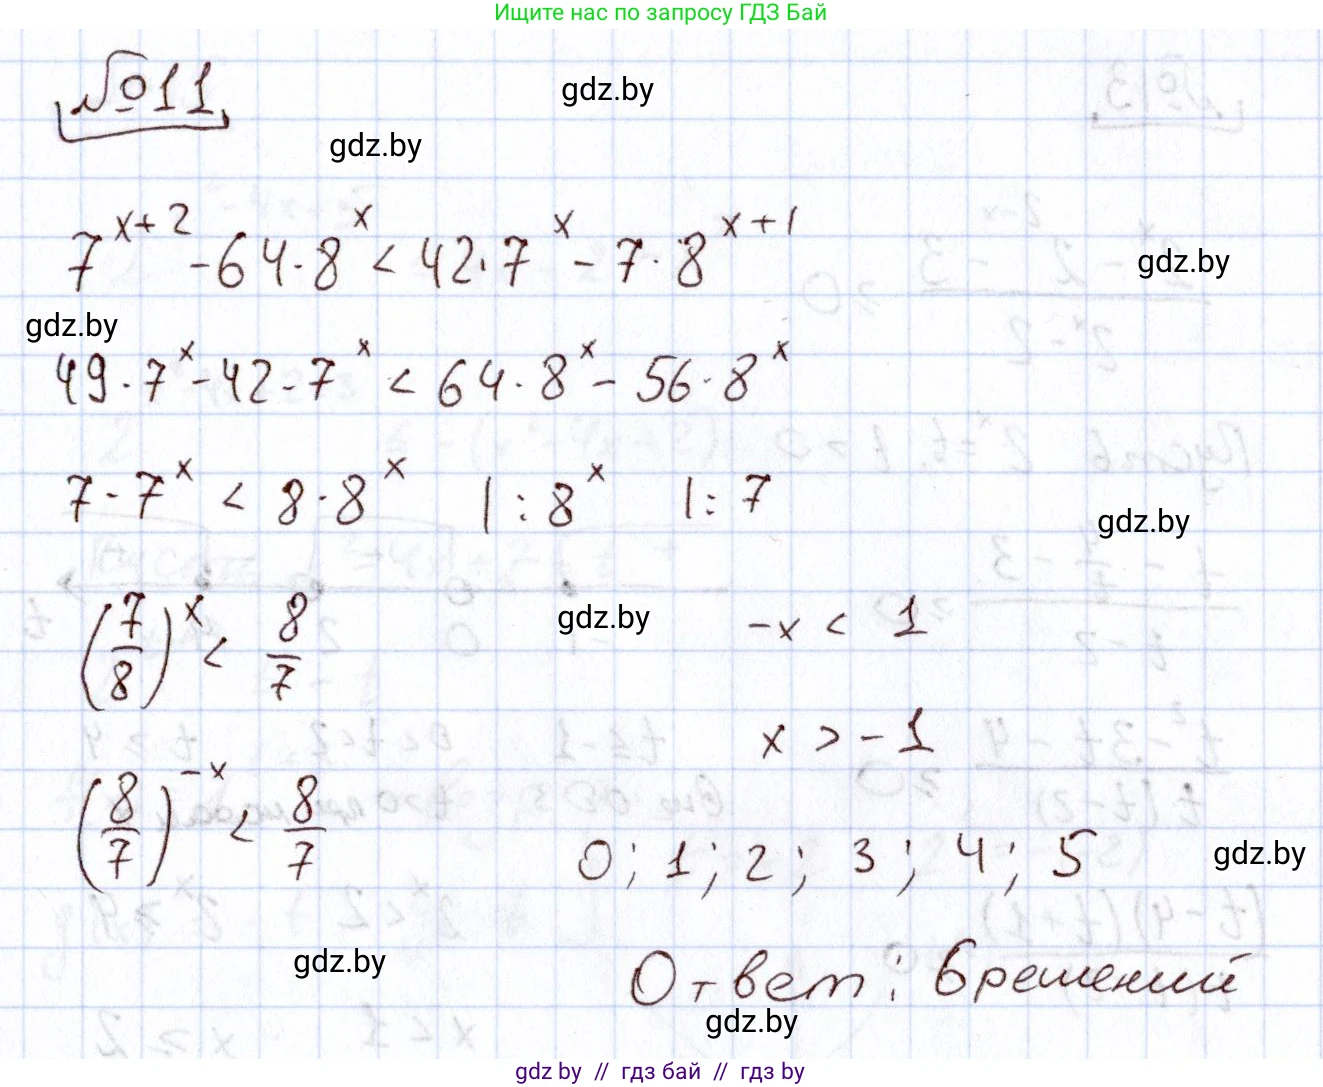 Ищите нас по запросу ГДЗ Бай
№011
gdz.by
gdz.by
7^{x+2} - 64·8^x < 42·7^x - 7·8^{x+1}
gdz.by
gdz.by
49·7^x - 42·7^x < 64·8^x - 56·8^x
7·7^x < 8·8^x |:8^x |:7
gdz.by
(7/8)^x < 8/7
gdz.by
-x < 1
x > -1
(8/7)^{-x} < 8/7
0; 1; 2; 3; 4; 5
gdz.by
gdz.by
Ответ: 6 решений
gdz.by
gdz by // гдз бай // гдз by